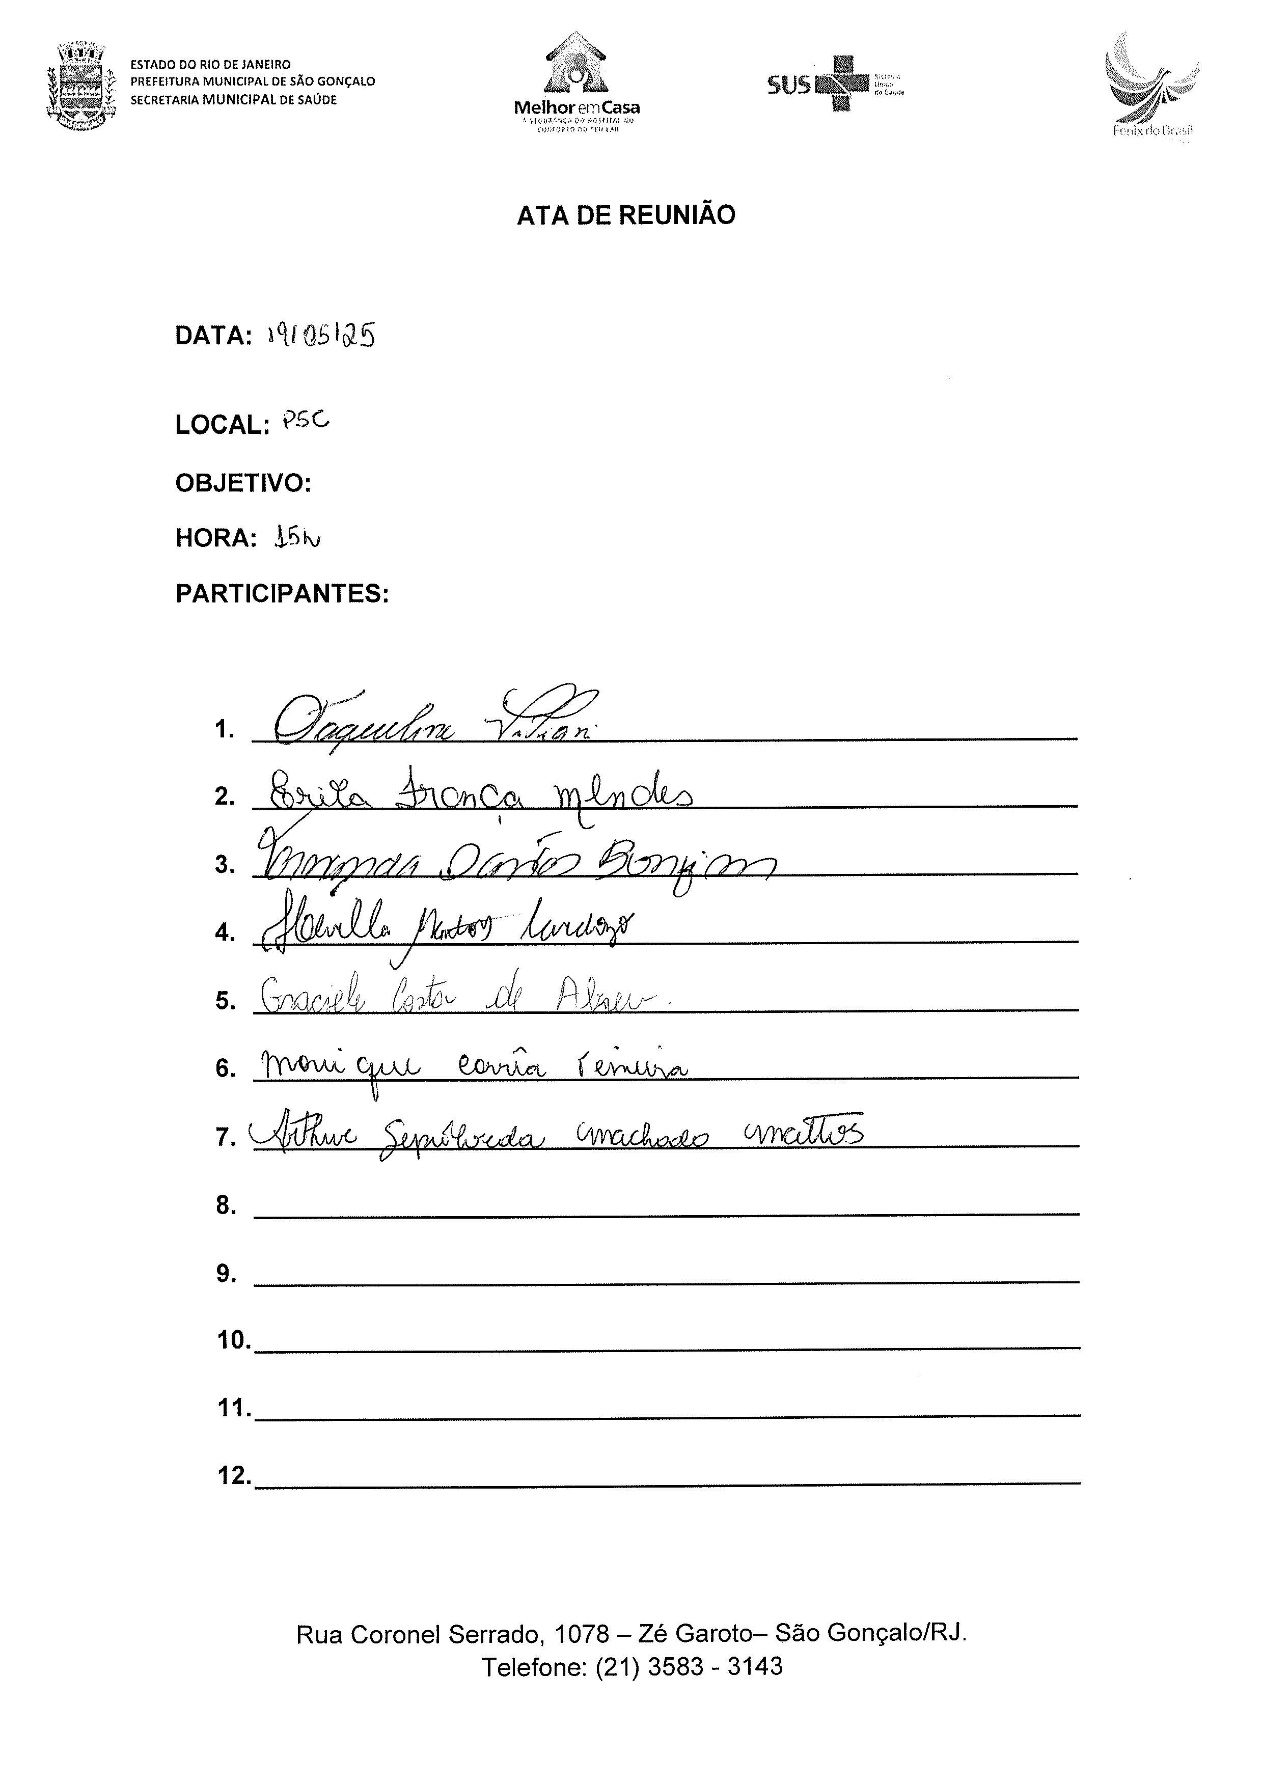 ESTADO DO RIO DE JANEIRO
PREFEITURA MUNICIPAL DE SÃO GONÇALO
SECRETARIA MUNICIPAL DE SAÚDE
Melhor em Casa
A SEGURANÇA DO HOSPITAL NO
CONFORTO DO SEU LAR
SUS
Sistema
Único
de Saúde
Fenix do Brasil
ATA DE REUNIÃO
DATA: 19/05/25
LOCAL: PSC
OBJETIVO:
HORA: 15h
PARTICIPANTES:
1. Jaqueline
2. Erika França Mendes
3. Santos Bomfim
4. Cardozo
5. Graciele Costa de
6. Monique Corrêa Ferreira
7. Arthur Sepúlveda Machado Mattos
8.
9.
10.
11.
12.
Rua Coronel Serrado, 1078 – Zé Garoto– São Gonçalo/RJ.
Telefone: (21) 3583 - 3143